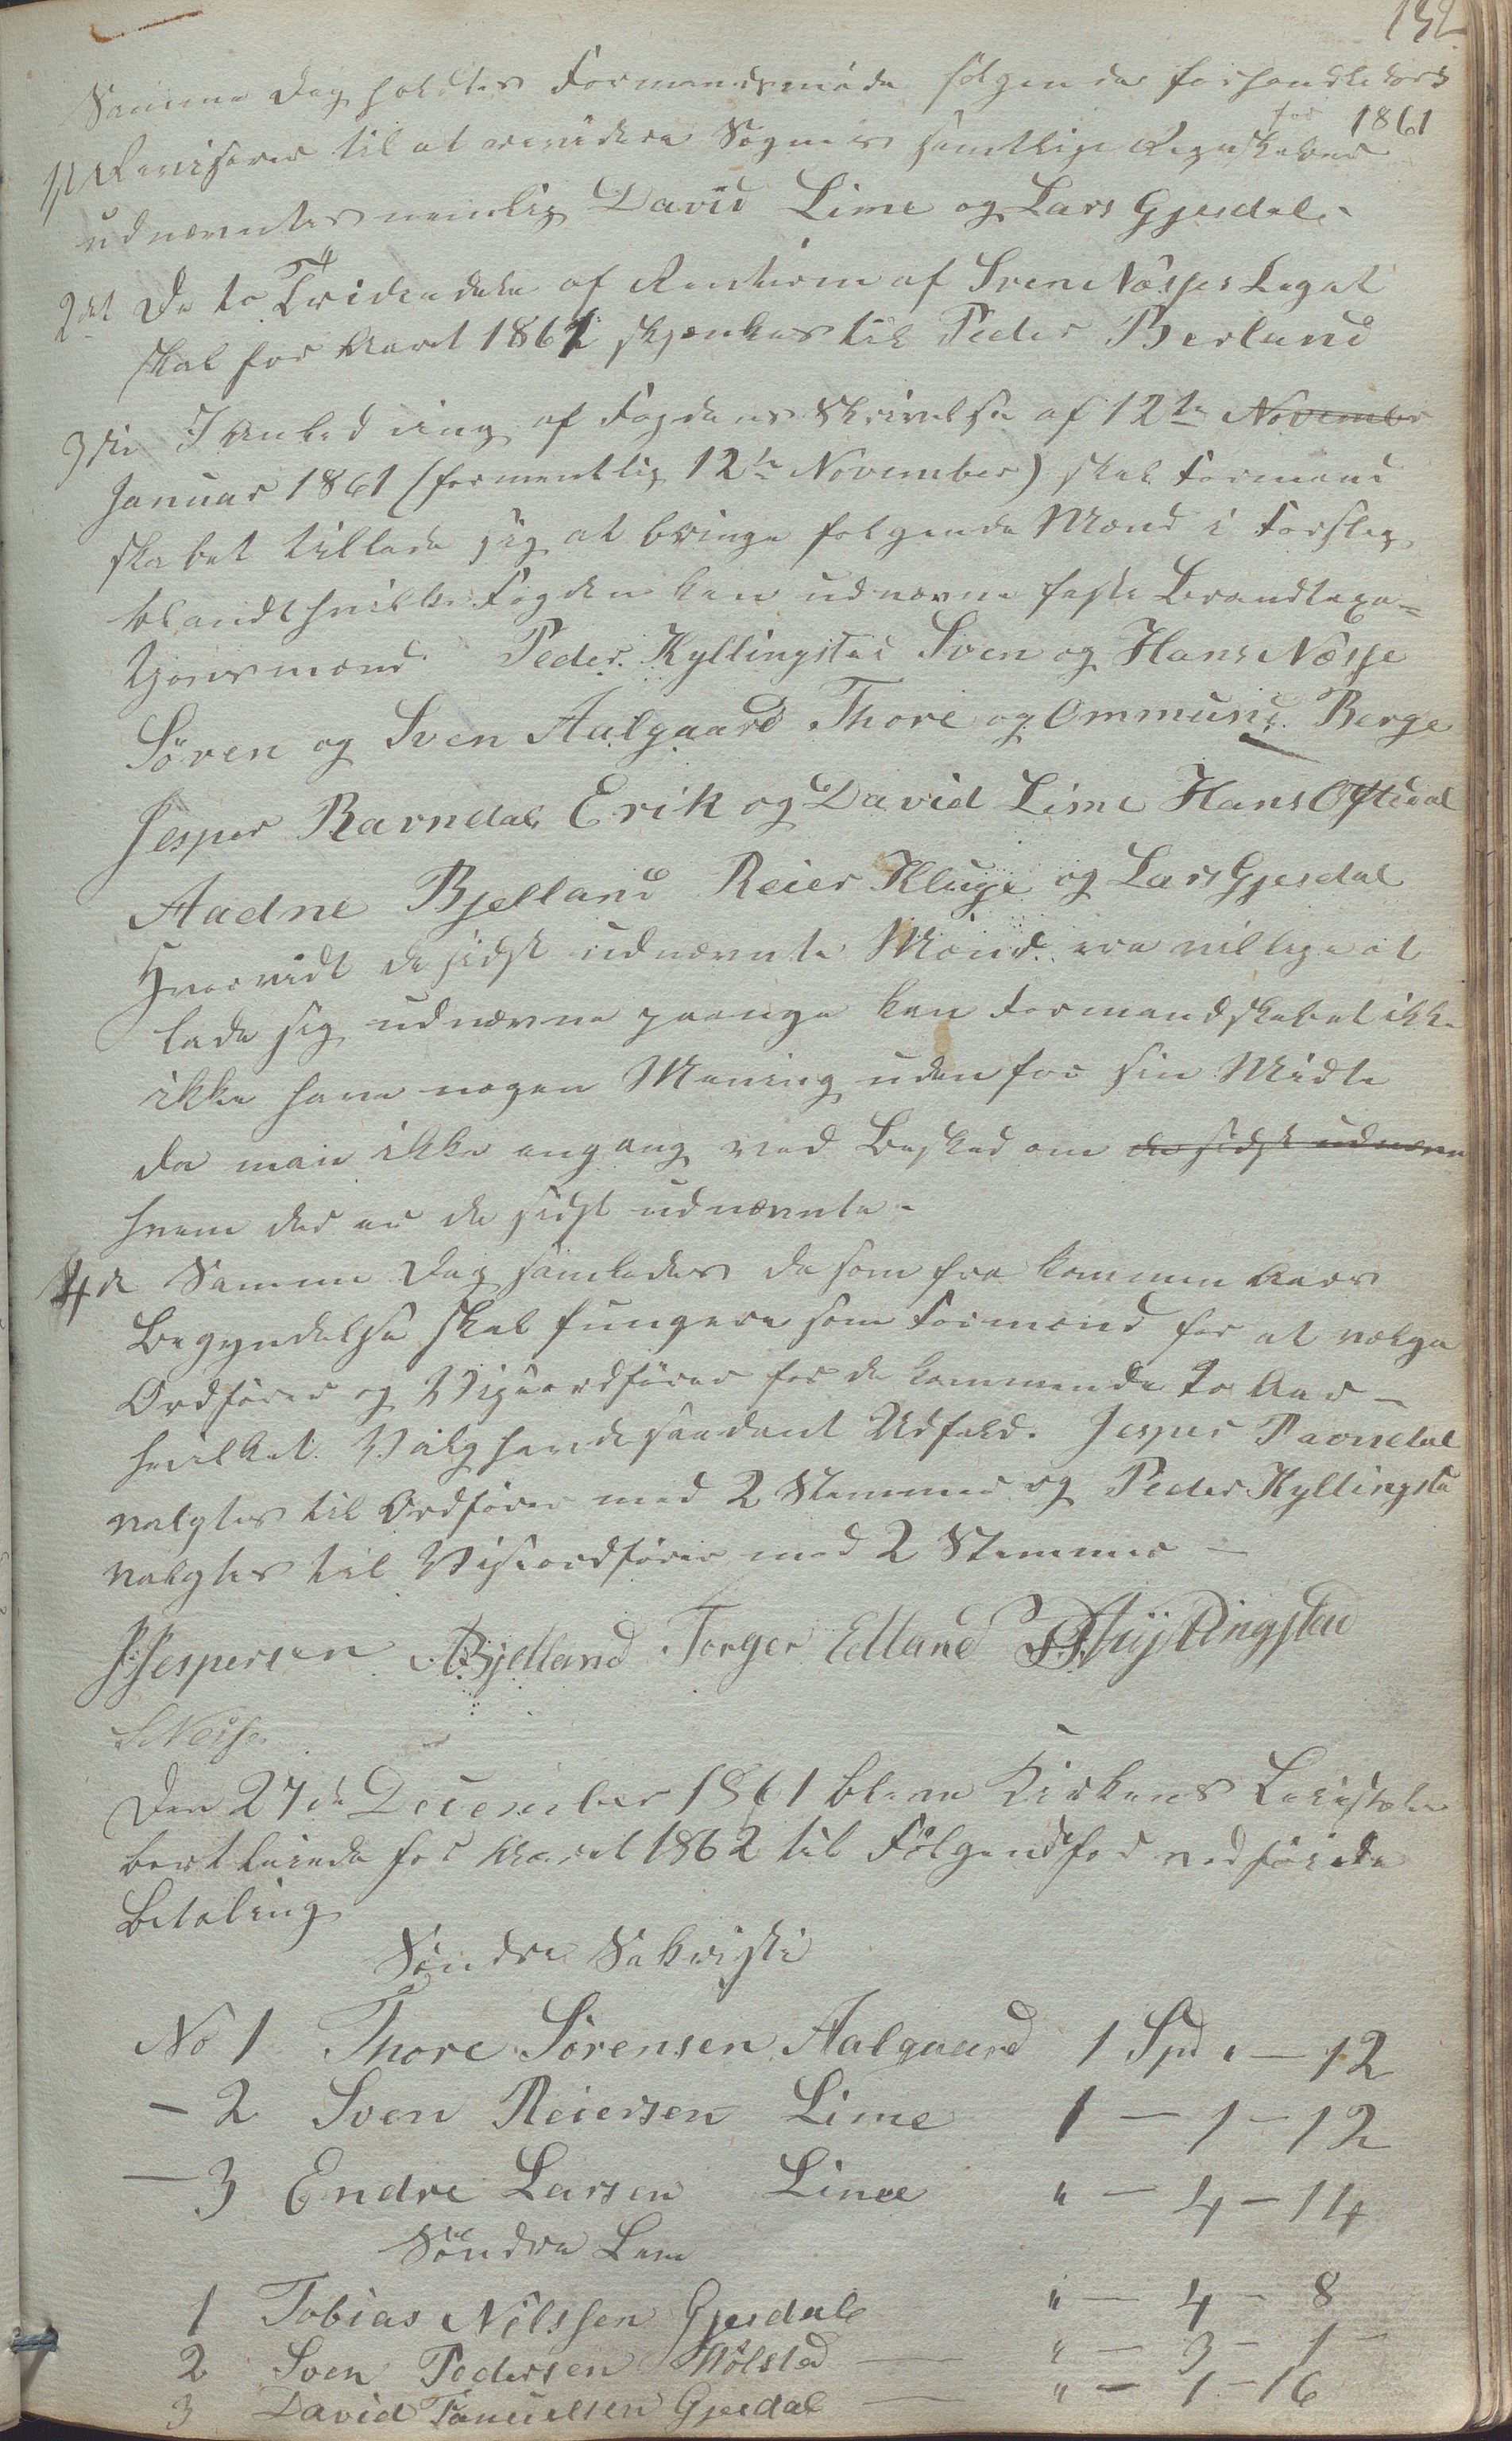 152
Samme Dag holdtes Formandsmøde følgende forhandledes
1st Revisorer til at revidere Sognes samtlige Regnskaber for 1861
udnævntes nemlig David Lime og Lars Gjesdal.
2det De to Trediedele af Renterne af Sven Næsses Legat
skal for Aaret 1861 skjænkes til Peder Berland
3die I Anledning af Fogdens Skrivelse af 12te November
Januar 1861 (formentlig 12te November) skal Formand
skabet tillade sig at bringe følgende Mænd i Forslag
blandt hvilke Fogden kan udnævne faste Brandtaxa=
tjonsmænd. Peder Kyllingstad Sven og Hans Næsse
Søren og Sven Aalgaard Thore og Ommund Berge
Jesper Ravndal Erik og David Lime Hans Oftedal
Aadne Bjelland Reier Kluge og Lars Gjesdal
Hvorvidt de sidst udnævnte Mænd ere villige at
lade sig udnævne paanye kan Formandskabet ikke
ikke have nogen Mening uden for sin Midte
da man ikke engang ved Besked om de sidst udnævn
hvem der er de sidst udnævnte.
4de Samme Dag samledes de som fra kommen Aars
Begyndelse skal fungere som Formænd for at vælge
Ordfører og Viseordfører for de kommende to Aar –
hvilket Valg havde saadant Udfald. Jesper Ravndal
valgtes til Ordfører med 2 Stemmer og Peder Kyllingsta
valgtes til Viseordfører med 2 Stemmer –
J. Jespersen A Bjelland Torger Edland P Kyllingstad
S Næsse
Den 27de December 1861 bleve Kirkens Leiestole
bortleiede for Aaret 1862 til Følgende for vedføiede
Betaling
Søndre Sakristi
No 1 Thore Sørensen Aalgaard 1 Spd " – 12
– 2 Sven Reiersen Lime 1 – 1 – 12
– 3 Endre Larsen Lime " – 4 – 14
Søndre Lem
1 Tobias Nilssen Gjesdal " – 4 – 8
2 Sven Pedersen Skølstad — " – 3 – 1 –
3 David Samuelsen Gjesdal — " – 1 – 16